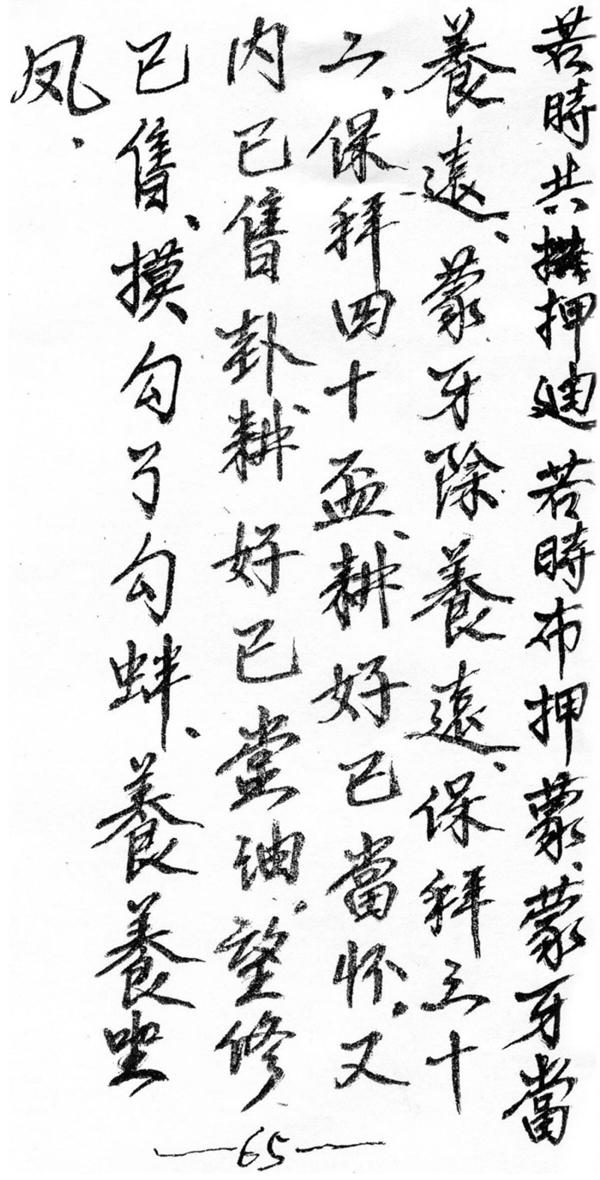 若時共押廸若時布押蒙、蒙牙當
養遠、蒙牙除養遠、保拜三十
二、保拜四十盃、耕好已當怀、又
内已售卦耕好已堂油、望修
已售、摸勾勾蚌、養養唑
凤、
—65—